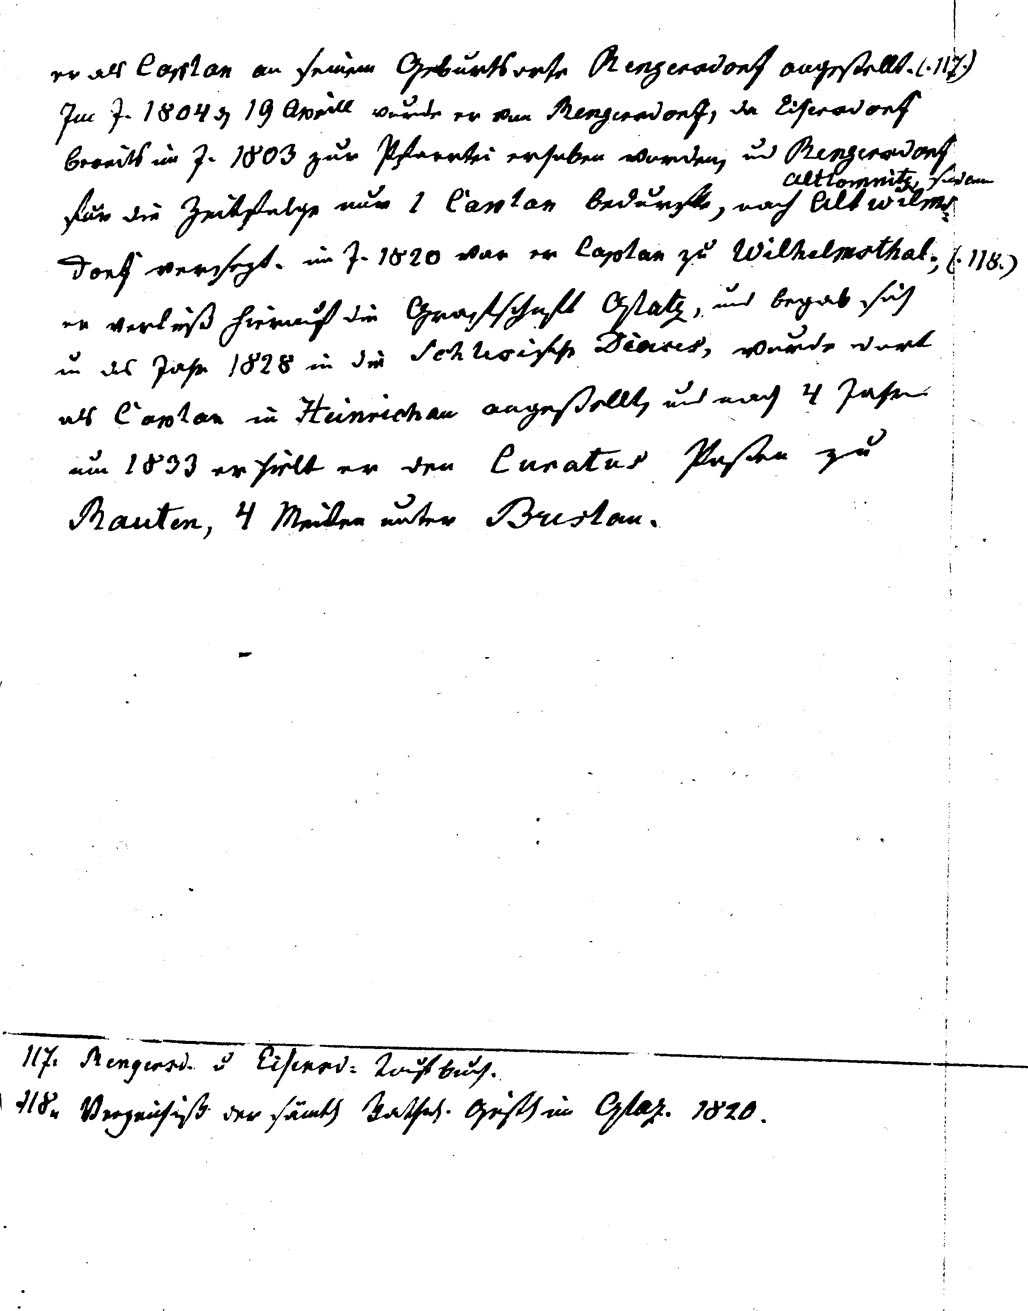 er als Caplan an seinem Geburtsorte Rengersdorf angestellt. (.117.)
Im J. 1804 d 19 Aprill wurde er von Rengersdorf, da Eisersdorf
bereits im J. 1803 zur Pfarrtei erhoben worden, und Rengersdorf
altlomnitz, sodann
für die Zeitfolge nur 1 Caplan bedurfte, nach Alt wilms
dorf versezt. im J. 1820 war er Caplan zu Wilhelmsthal; (.118.)
er verließ hierauf die Grafschaft Glatz, und begab sich
in das Jahr 1828 in die Schlesische Diöces, wurde dort
als Caplan in Heinrichau angestellt, und nach 4 Jahren
um 1833 erhielt er den Curatus Posten zu
Rauten, 4 Meilen unter Breslau.
117. Rengersd. u Eisersd: Taufbuch.
118. Verzeichniß der sämtl Kathol. Geistl im Glaz. 1820.